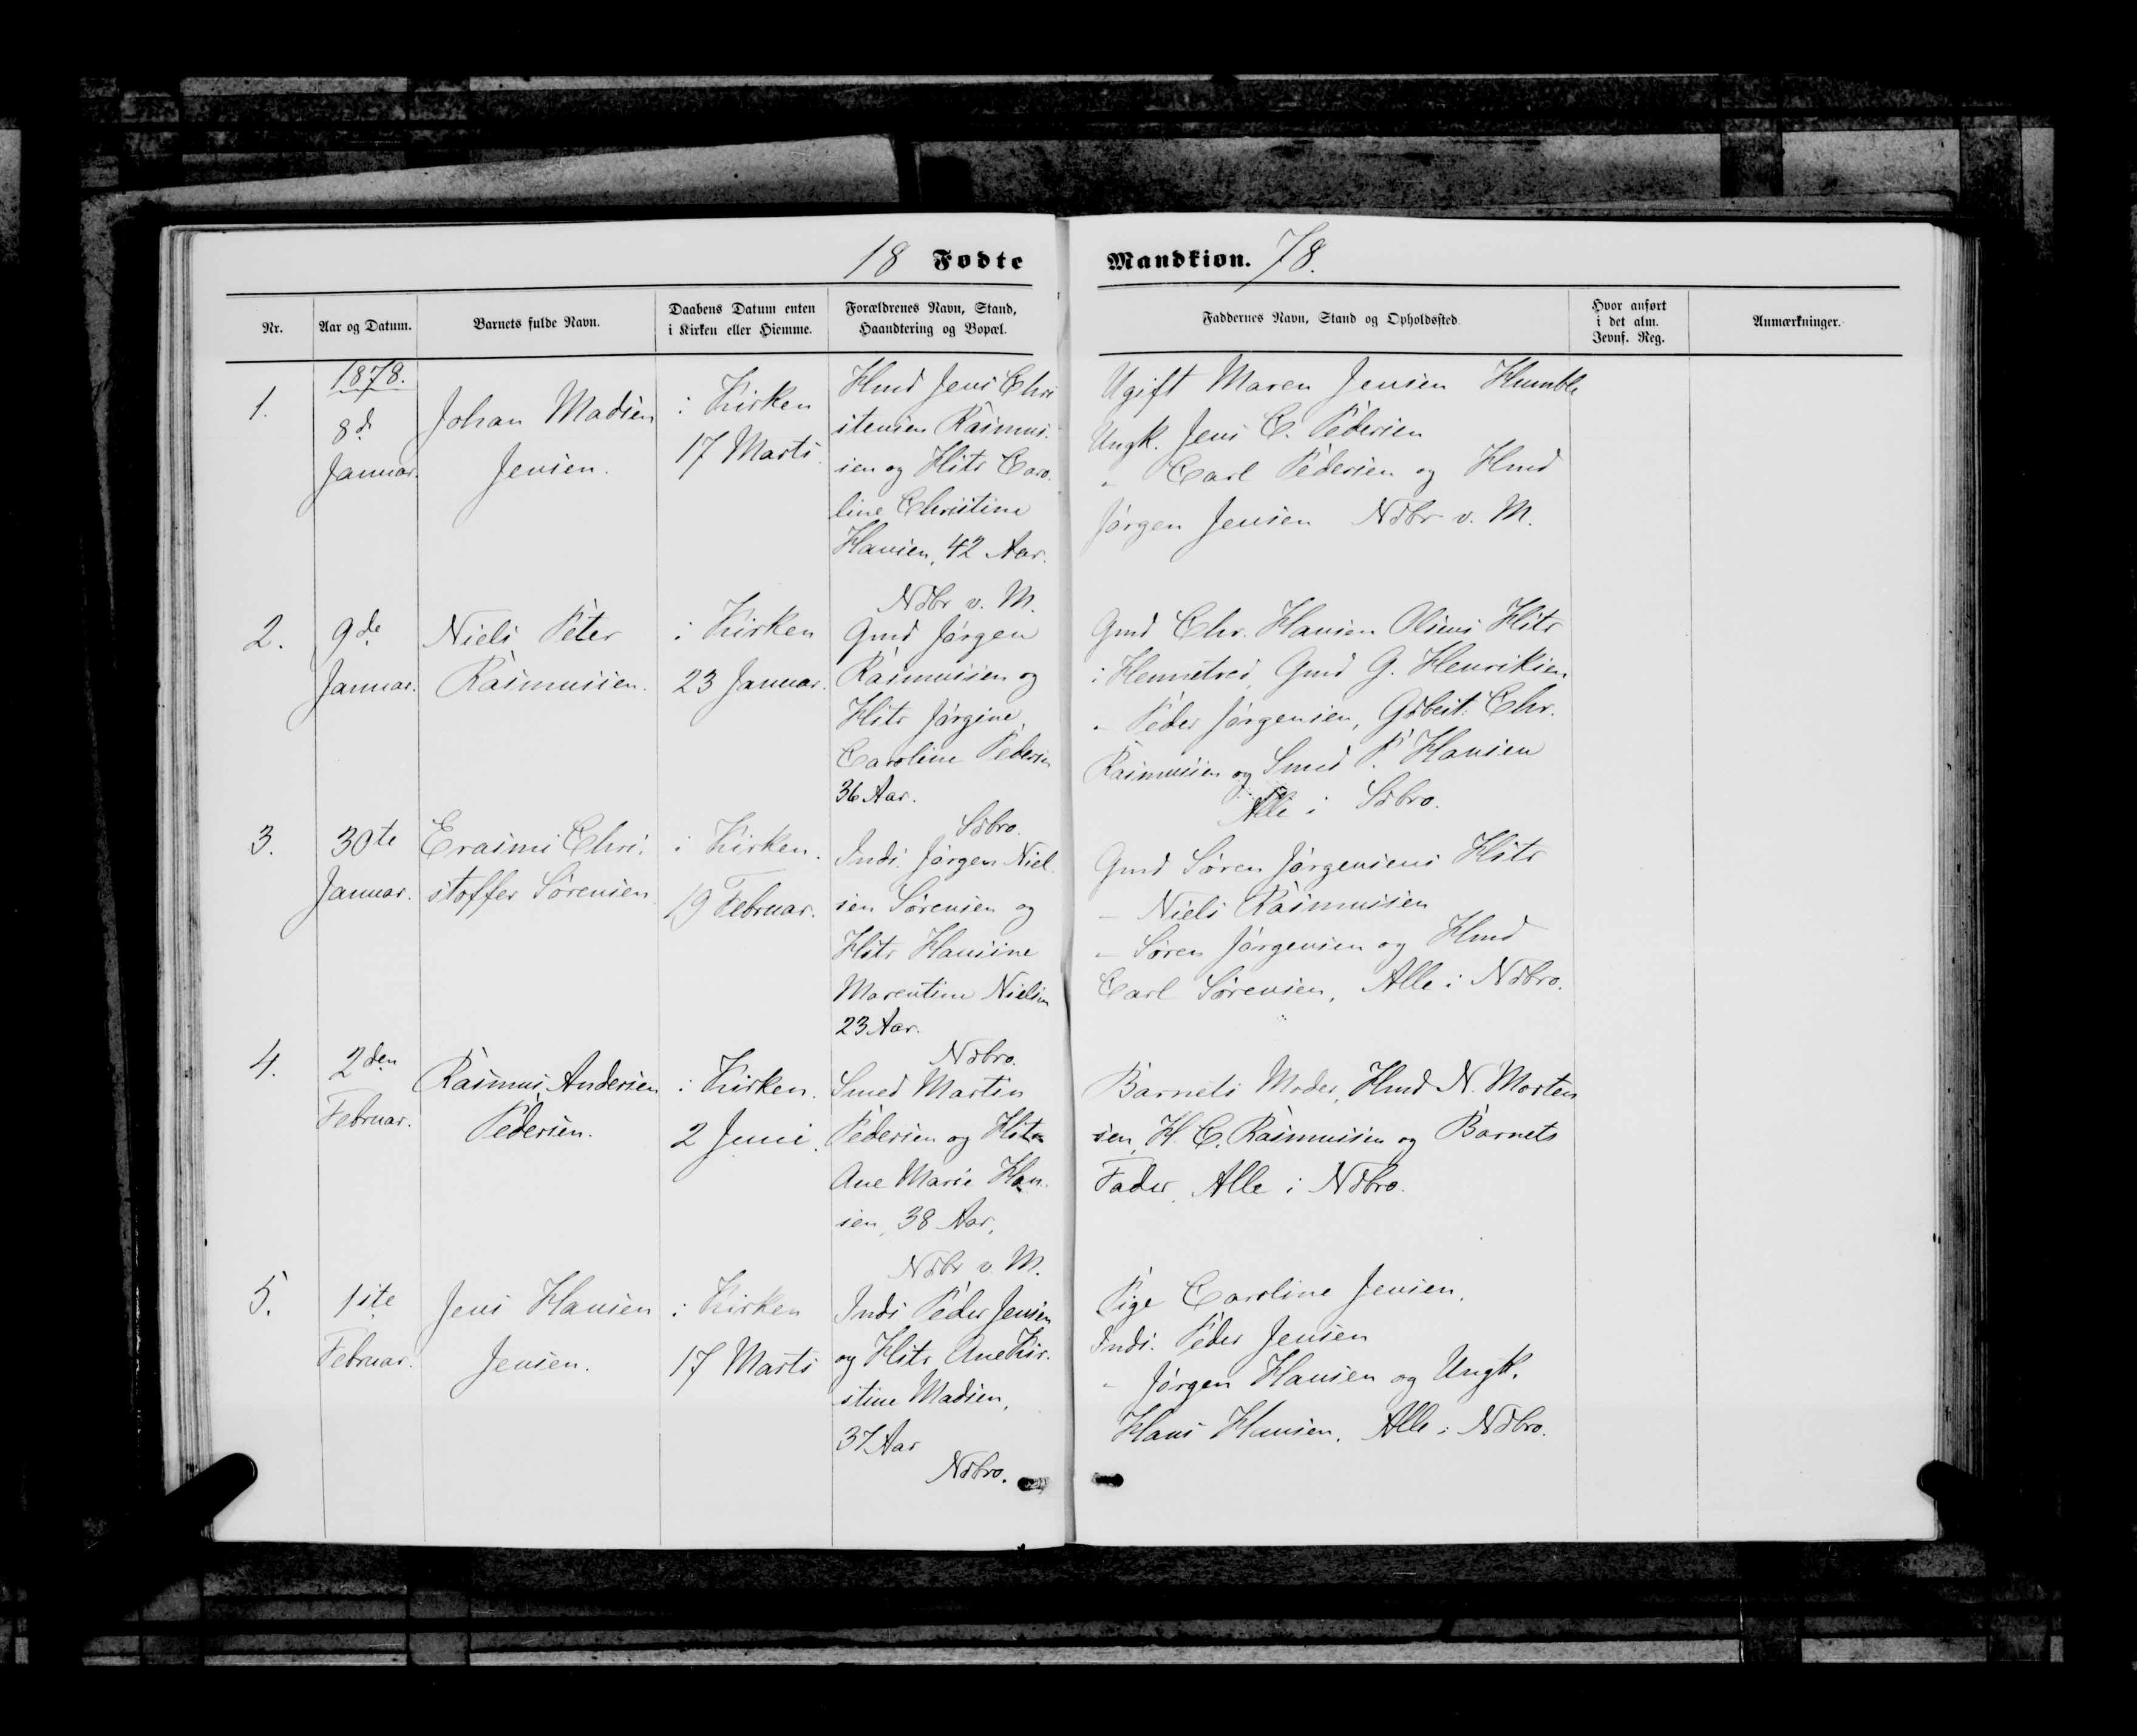 18 Fødte Mandkiøn. 78.
Nr.
Aar og Datum.
Barnets fulde Navn.
Daabens Datum enten
i Kirken eller Hiemme.
Forældrenes Navn, Stand,
Haandtering og Bopæl.
Faddernes Navn, Stand og Opholdssted
Hvor anført
i det alm.
Jevnf. Reg.
Anmærkninger.
1.
1878.
8d.
Januar.
Johan Madsen
Jensen.
i Kirken
17 Marts
Hmd Jens Chri
stensen Rasmus-
sen og Hstr Caro-
line Christine
Hansen, 42 Aar.
Ndbr v. M.
Ugift Maren Jensen Humble
Ungk. Jens C. Pedersen
" Carl Pedersen og Hmd
Jørgen Jensen Ndbr v. M.
2.
9de
Januar.
Niels Peter
Rasmussen.
i Kirken
23 Januar.
Gmd Jørgen
Rasmussen og
Hstr Jørgine,
Caroline Pedersen
36 Aar.
Sdbro.
Gmd Chr. Hansen Olsens Hstr
i Hennetved, Gmd G. Henriksen
" Peder Jørgensen, Gdbest. Chr.
Rasmussen og Smed P. Hansen
Alle i Sdbro.
3.
30te
Januar.
Erasmi Chri-
stoffer Sørensen
i Kirken.
19 Februar.
Inds. Jørgen Niel-
sen Sørensen og
Hstr Hansine
Marentine Nielsen
23 Aar.
Ndbro.
Gmd Søren Jørgensens Hstr
— Niels Rasmussen
— Søren Jørgensen og Hmd
Carl Sørensen, Alle i Ndbro.
4.
2den
Februar.
Rasmus Andersen
Pedersen.
i Kirken.
2 Juni.
Smed Martin
Pedersen og Hstr
Ane Marie Han-
sen, 38 Aar,
Ndbr v. M.
Barnets Moder, Hmd N. Morten
sen, H. C. Rasmussen og Barnets
Fader, Alle i Ndbro.
5.
1ste
Februar.
Jens Hansen
Jensen.
i Kirken
17 Marts
Inds Peder Jensen
og Hstr Ane Kir-
stine Madsen,
37 Aar
Ndbro.
Pige Caroline Jensen,
Inds. Peder Jensen
" Jørgen Hansen og Ungk.
Hans Hansen. Alle i Ndbro.